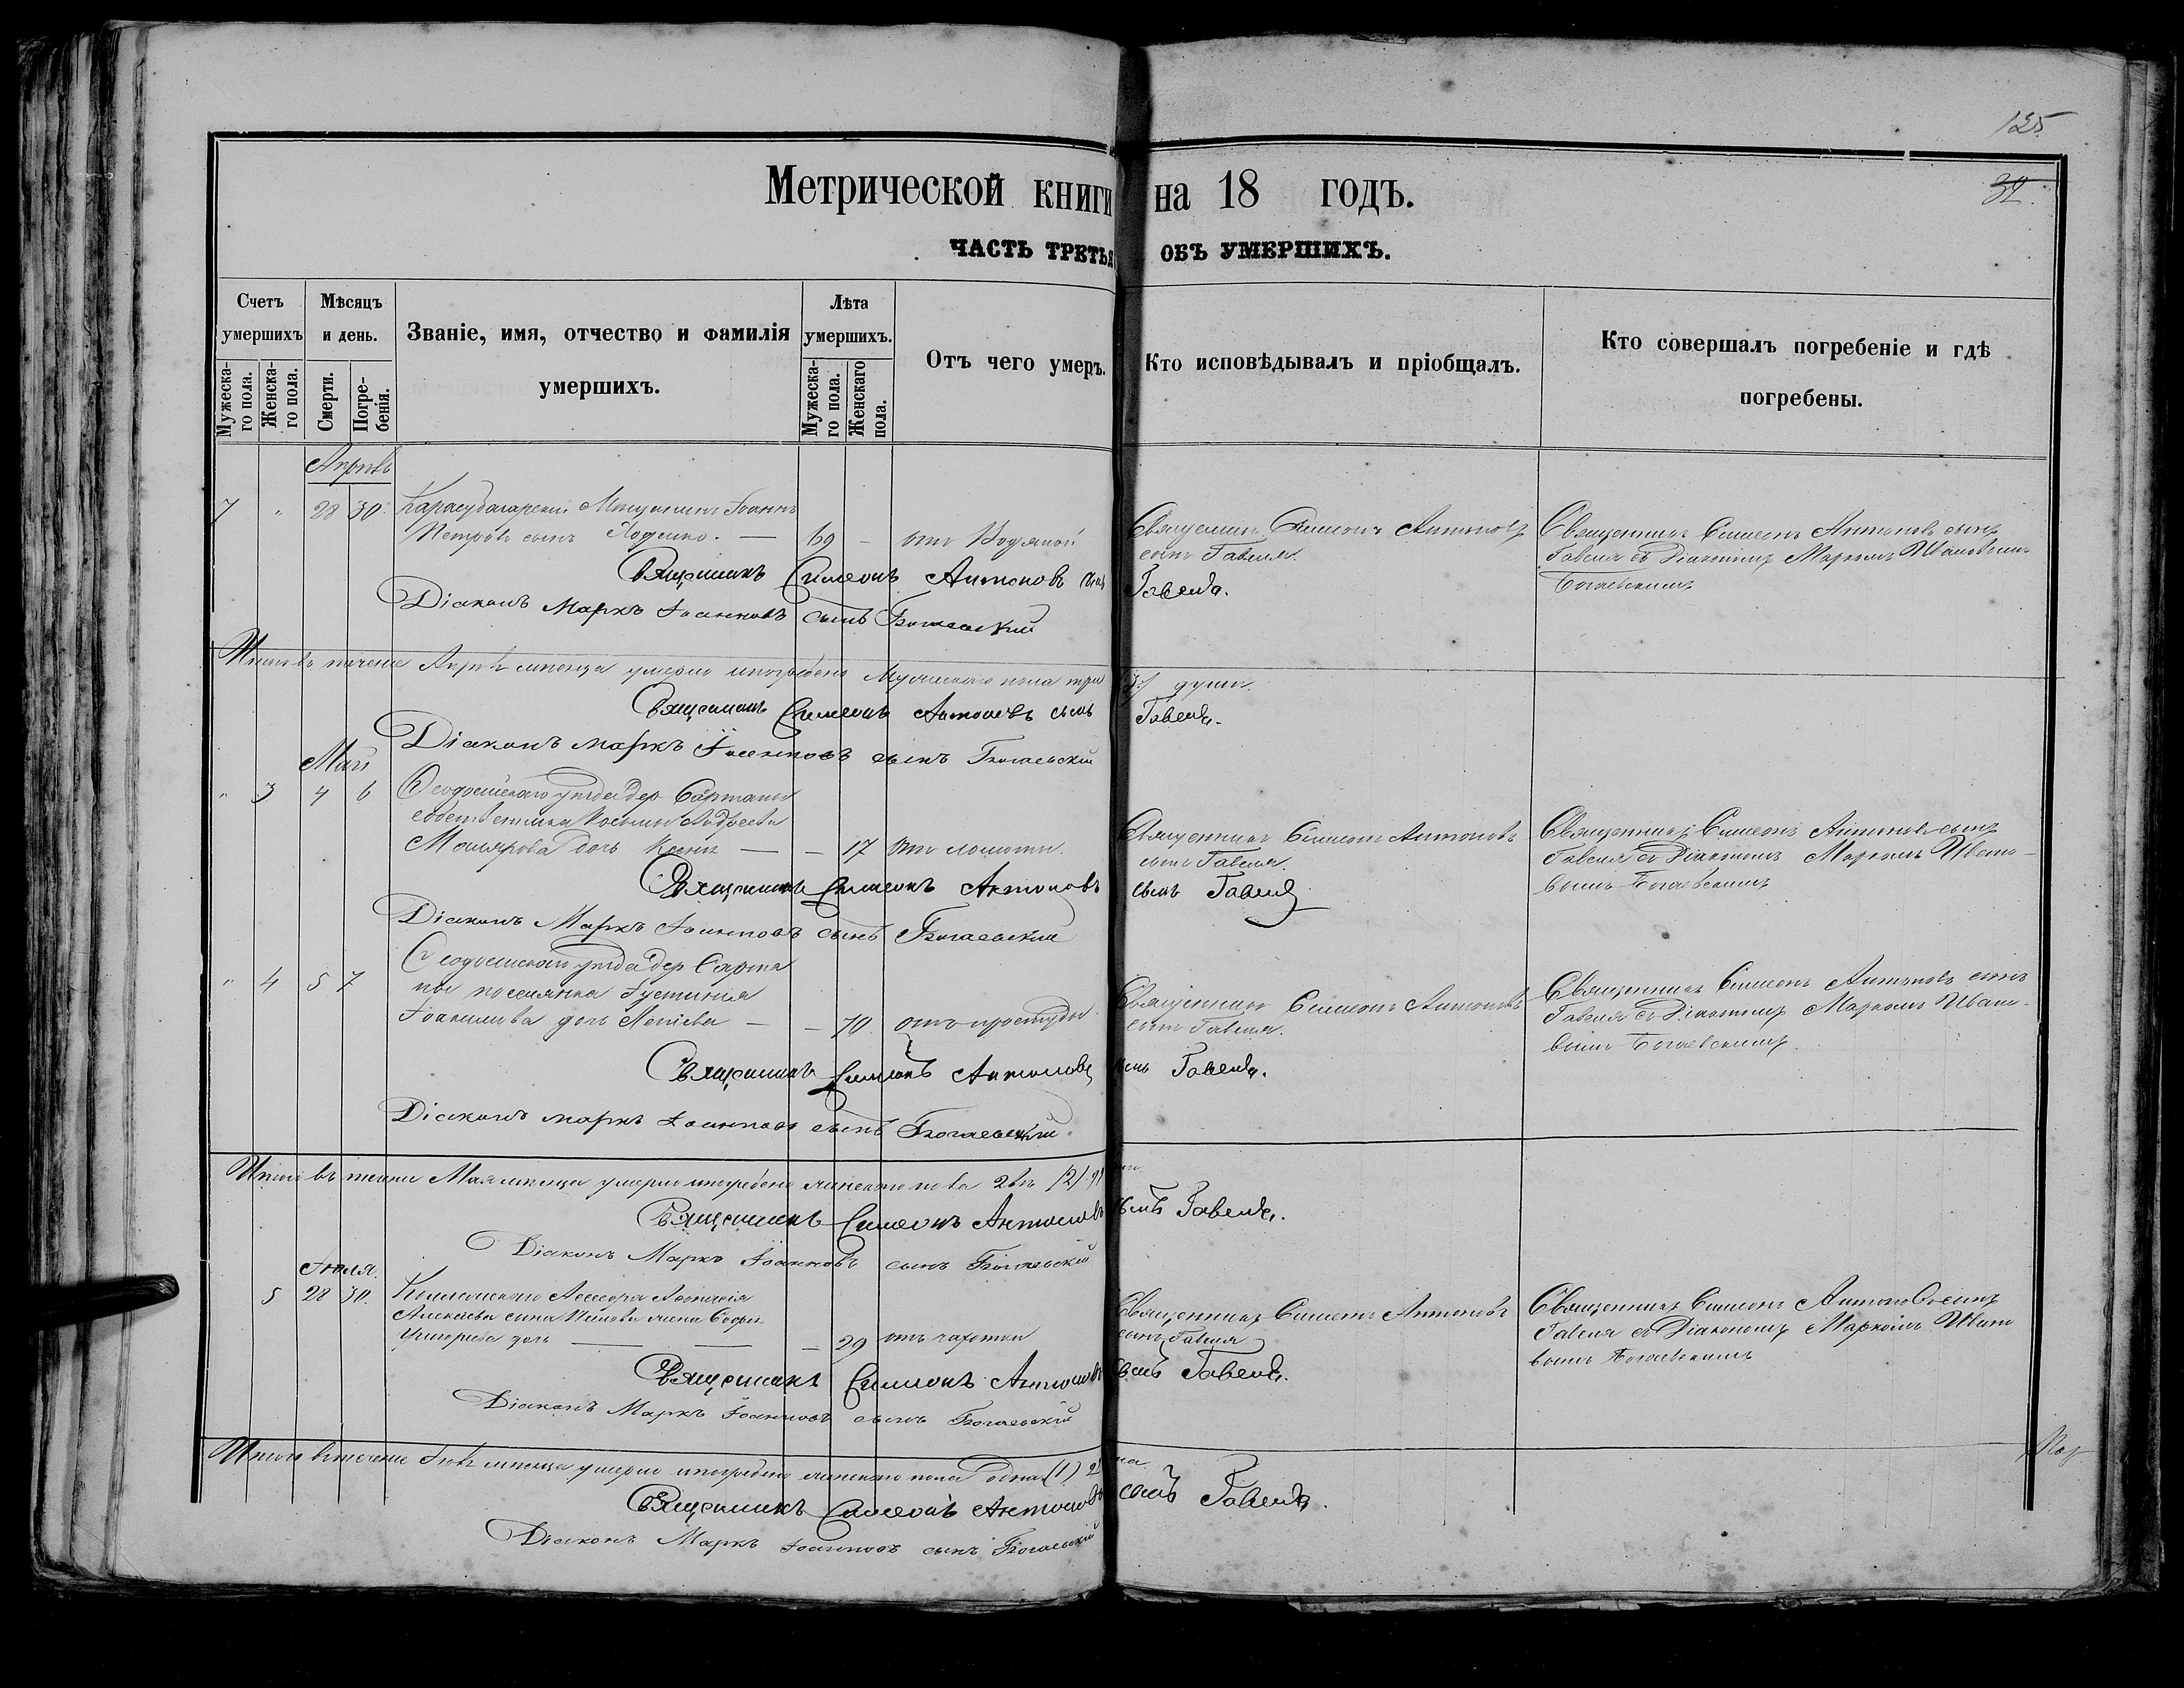 125
32.
Метрической книги на 18 годъ.
ЧАСТЬ ТРЕТЬЯ ОБЪ УМЕРШИХЪ.
Счетъ умершихъ
Мѣсяцъ и день.
Званіе, имя, отчество и фамилія умершихъ.
Лѣта умершихъ.
Отъ чего умеръ.
Кто исповѣдывалъ и пріобщалъ.
Кто совершалъ погребеніе и гдѣ погребены.
Мужеска-го пола.
Женска-го пола.
Смерти.
Погре-бенія.
Мужеска-го пола.
Женскаго пола.
Апрѣль
7 " 28 30 Карасубазарскій Мѣщанинъ Іоаннъ
Петровъ сынъ — 69 — отъ Водяной
Священникъ Симеонъ Антоновъ
сынъ Гавеля.
Священникъ Симеонъ Антоновъ сынъ
Гавеля съ Діакономъ Маркомъ Ивановымъ
Богаевскимъ
Священникъ Симеонъ Антоновъ сынъ Гавеля.
Діаконъ Маркъ Іоанновъ сынъ Богаевскій
Итого въ теченіе Апрѣ. мѣсяца умерло и погребено Мужескаго пола три (3) души.
Священникъ Симеонъ Антоновъ сынъ Гавеля.
Діаконъ Маркъ Іоанновъ сынъ Богаевскій
Май
" 3 4 6 Ѳеодосійскаго уѣзда дер.
собственника
дочь — — 17
Священникъ Симеонъ Антоновъ
сынъ Гавеля.
Священникъ Симеонъ Антоновъ сынъ
Гавеля съ Діакономъ Маркомъ Ивано-
вымъ Богаевскимъ
Священникъ Симеонъ Антоновъ сынъ Гавеля
Діаконъ Маркъ Іоанновъ сынъ Богаевскій
" 4 5 7 Ѳеодосійскаго уѣзда дер.
поселянка Іустинія
дочь — — 70 отъ простуды.
Священникъ Симеонъ Антоновъ
сынъ Гавеля.
Священникъ Симеонъ Антоновъ сынъ
Гавеля съ Діакономъ Маркомъ Ивано-
вымъ Богаевскимъ.
Священникъ Симеонъ Антоновъ сынъ Гавеля.
Діаконъ Маркъ Іоанновъ сынъ Богаевскій.
Итого въ теченіи Мая мѣсяца умерло и погребено женскаго пола двѣ (2)
Священникъ Симеонъ Антоновъ сынъ Гавеля.
Діаконъ Маркъ Іоанновъ сынъ Богаевскій
Іюля.
5 28 30.
Алексѣева сына жена
дочь — — — 29 отъ чахотки
Священникъ Симеонъ Антоновъ
сынъ Гавеля
Священникъ Симеонъ Антоновъ сынъ
Гавеля съ Діакономъ Маркомъ Ивано
вымъ Богаевскимъ
Священникъ Симеонъ Антоновъ сынъ Гавеля.
Діаконъ Маркъ Іоанновъ сынъ Богаевскій
Итого въ теченіе мѣсяца умерло и погребено женскаго пола одна (1)
Священникъ Симеонъ Антоновъ сынъ Гавеля.
Діаконъ Маркъ Іоанновъ сынъ Богаевскій